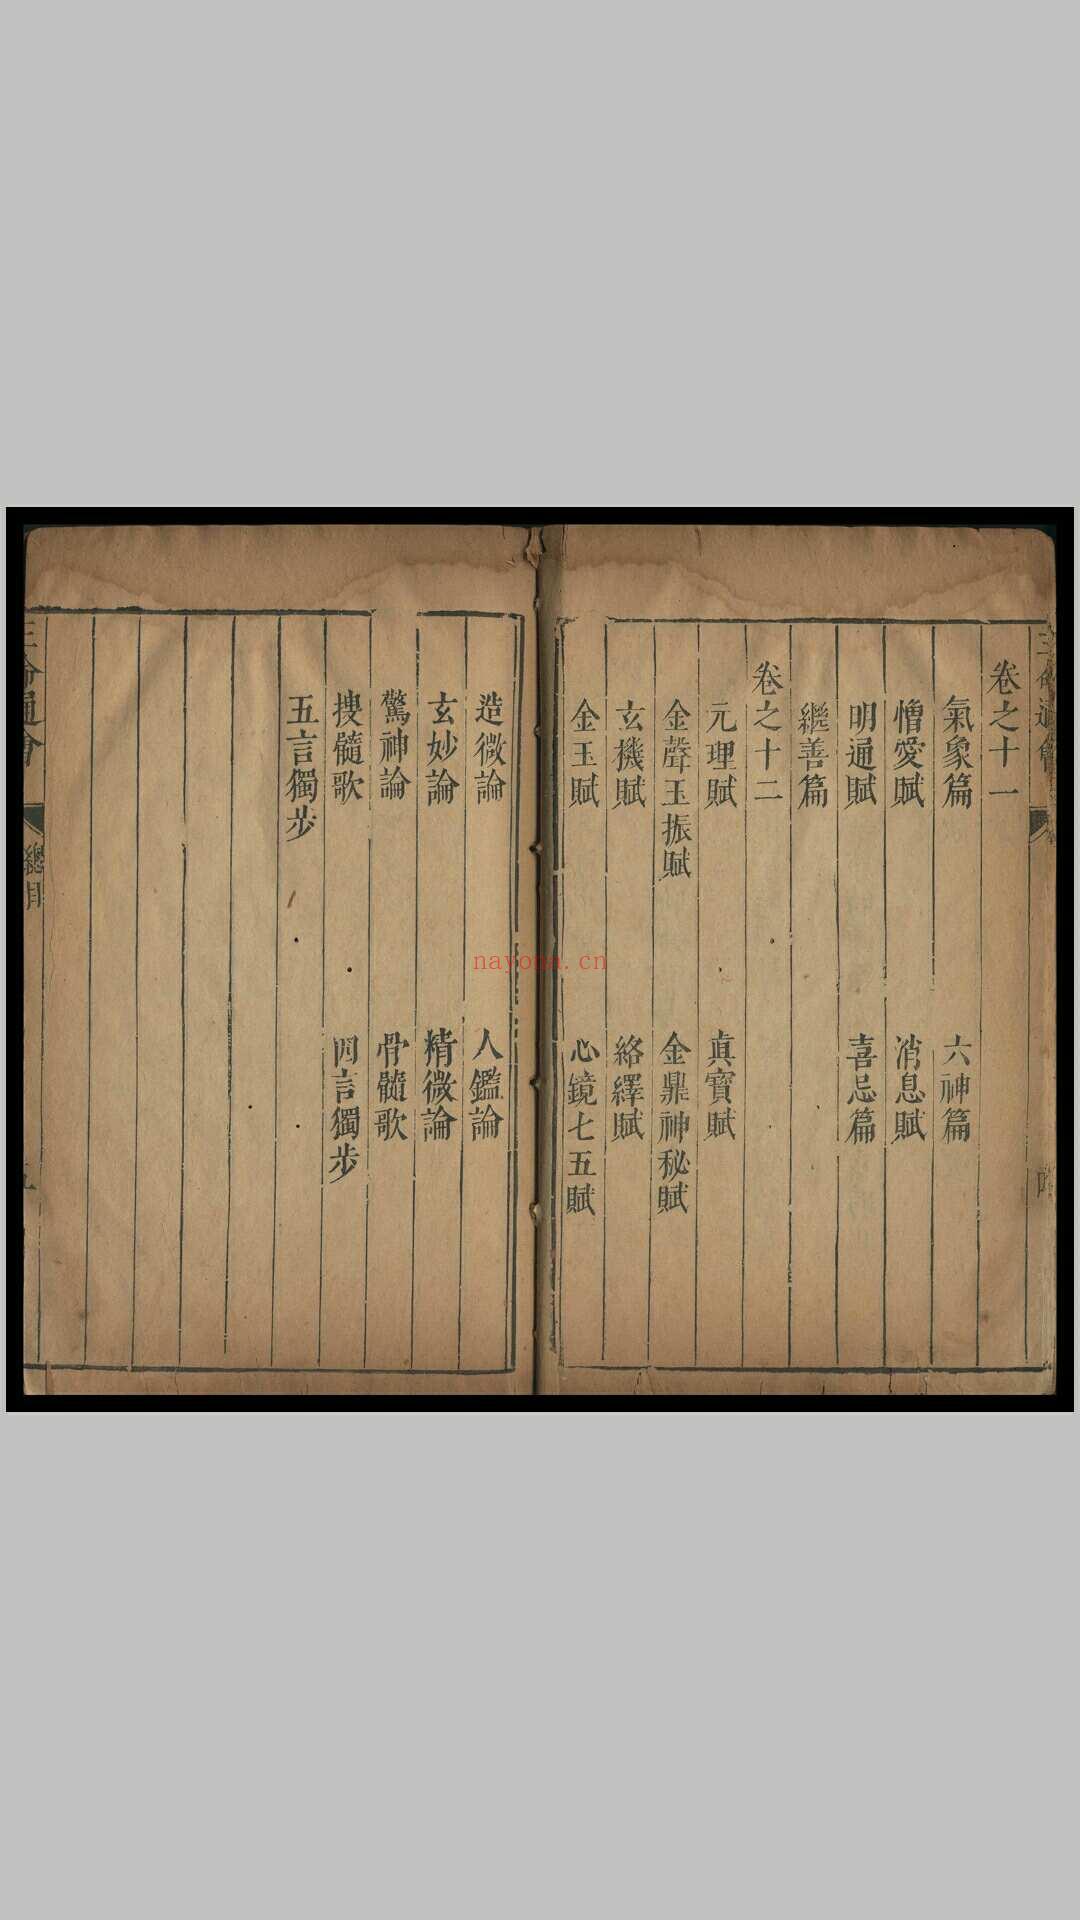 卷之十一
氣象篇 六神篇
憎愛賦 消息賦
明通賦 喜忌篇
繼善篇
卷之十二
元理賦 真寶賦
金聲玉振賦 金鼎神秘賦
玄機賦 絡繹賦
金玉賦 心鏡七五賦
造微論 人鑑論
玄妙論 精微論
驚神論 骨髓歌
搜髓歌 四言獨步
五言獨步
通會
總
nayona.cn